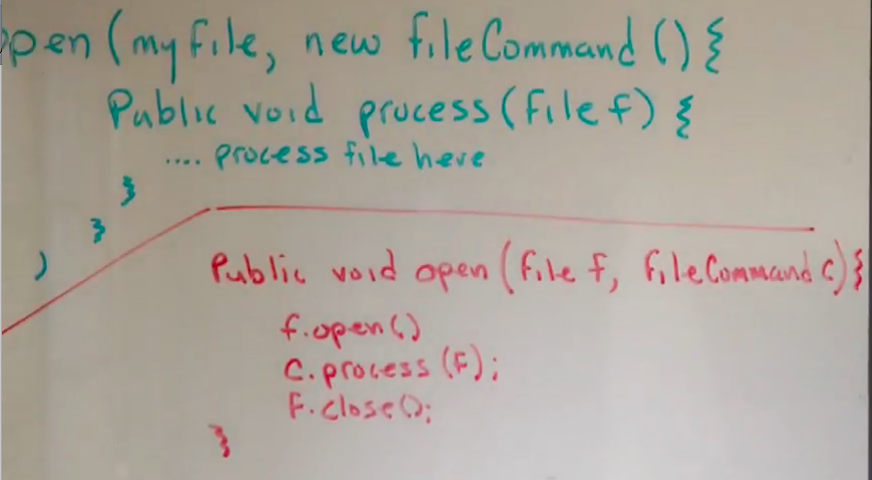 open(myfile, new fileCommand(){
Public void process(file f) {
.... process file here
}
}
)
Public void open(file f, fileCommand c){
f.open()
c.process(f);
f.close();
}